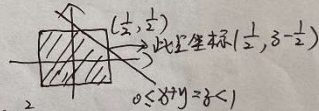 (1/2, 1/2)
此区坐标(1/2, z-1/2)
0≤x+y=z<1
2